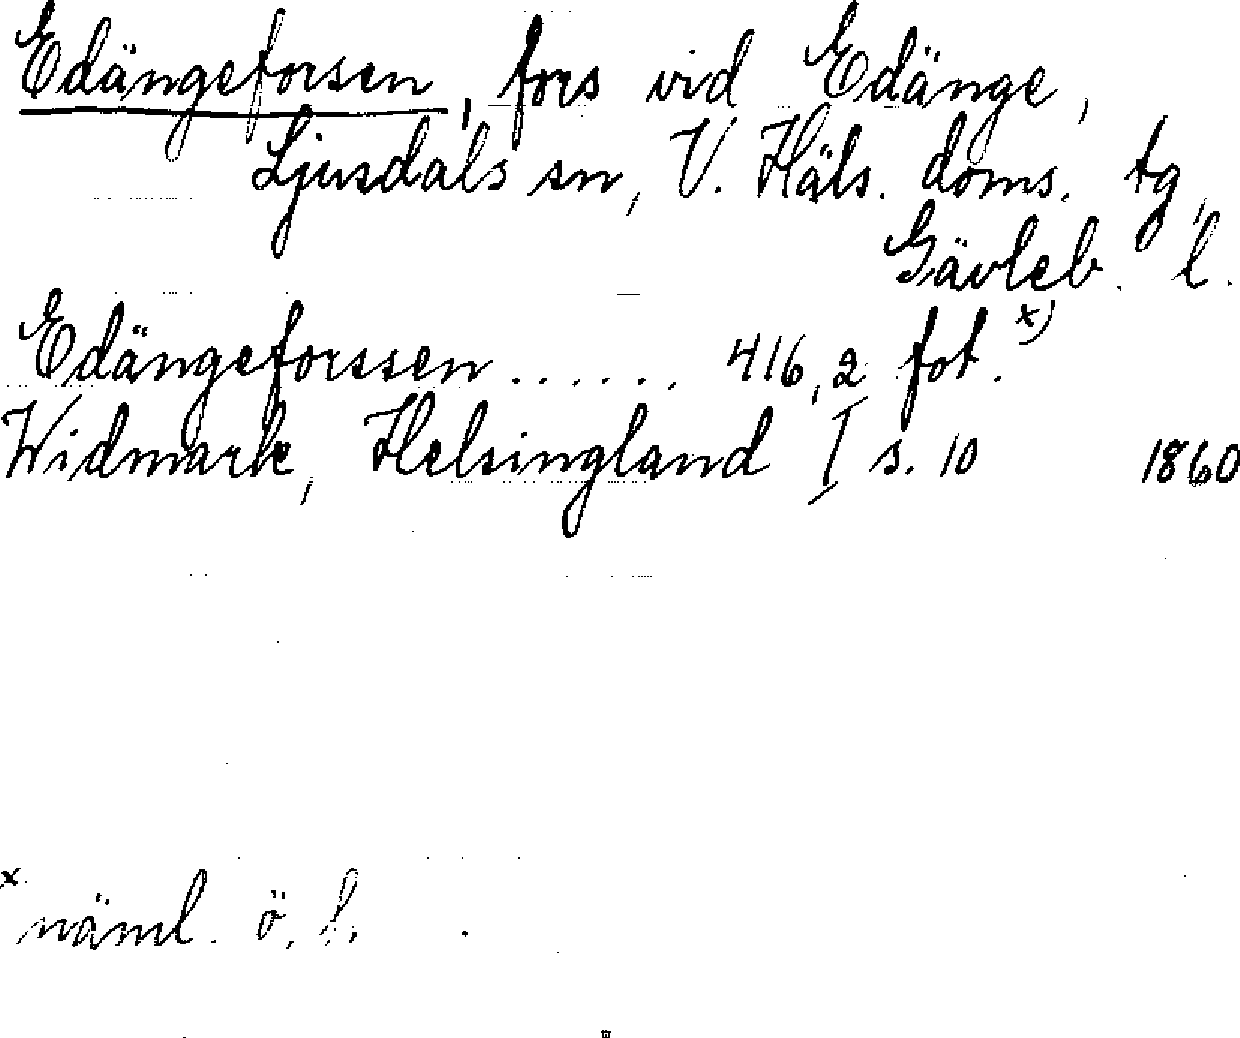 Edängeforsen, fors vid Edänge,
Ljusdals sn, V. Häls. doms. tg,
Gävleb. l.
Edängeforssen . . . . . . 416,2 fot. x)
Widmark, Helsingland I s. 10 1860
x näml. ö. h.